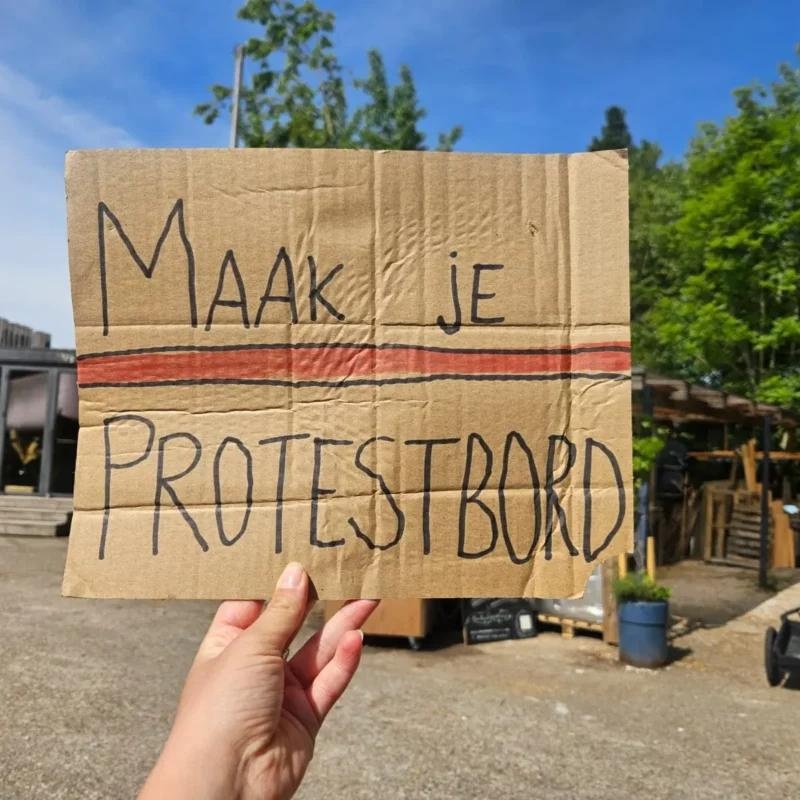 MAAK jE
PROTESTBORD